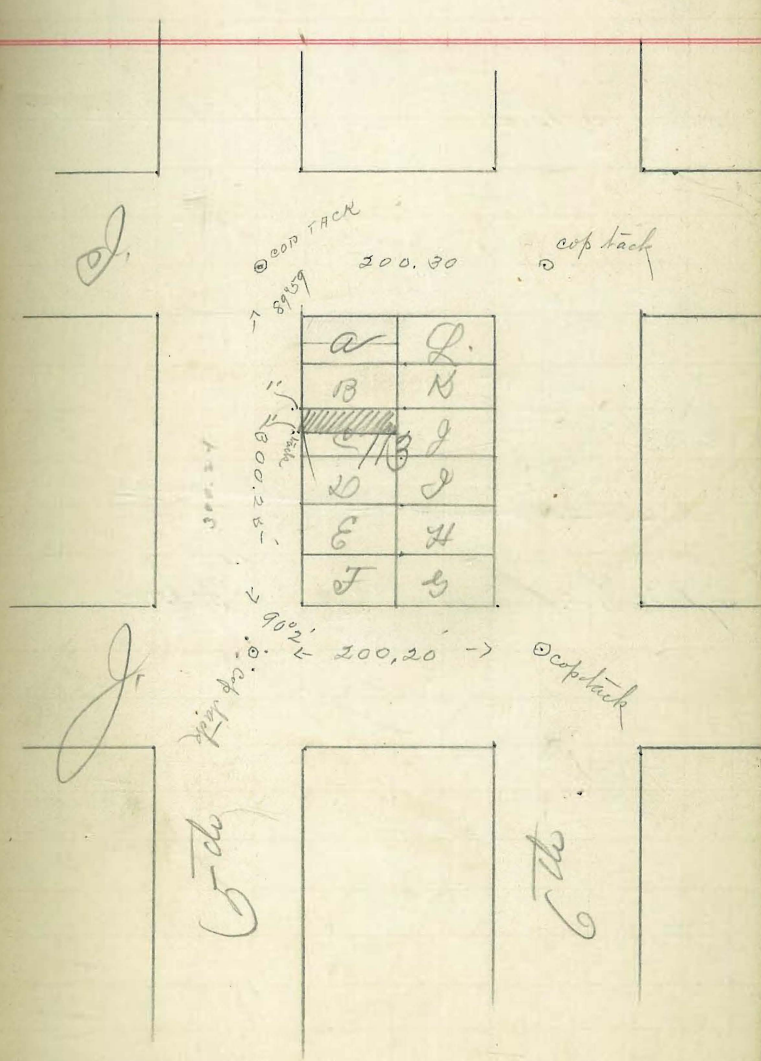 I.
⊙ COP TACK
200.30
cop tack
89°59
A L.
B K
C J
113
D I
E H
F G
tack
300.25
300.24
90°2'
← 200,20' →
cop tack
cop tack
J.
5th
6th